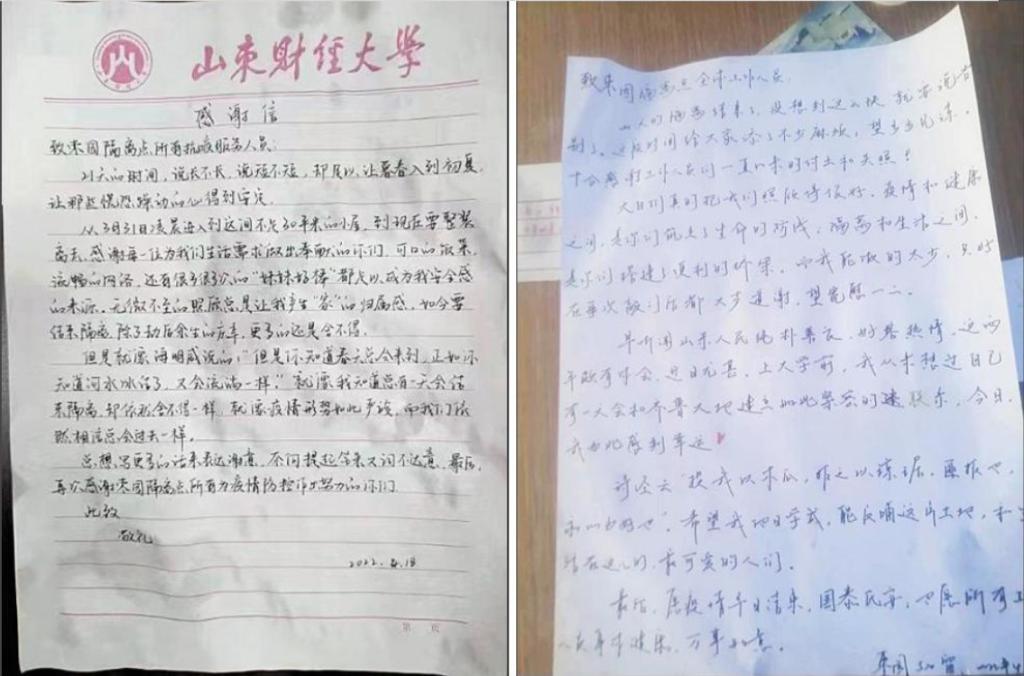 山東财经大学
感谢信
致枣园隔离点所有抗疫服务人员:
21天的时间,说长不长,说短不短,却足以让暮春入到初夏,
让那些慌恐躁动的心得到安定。
从3月31日凌晨进入到这间不足30平米的小屋,到现在要整装
离去,感谢每一位为我们生活需求做出奉献的你们,可口的饭菜,
流畅的网络,还有很多很多次的“妹妹好停”都足以成为我安全感
的来源。无微不至的照顾总是让我产生“家”的归属感,如今要
结束隔离,除了劫后余生的庆幸,更多的还是舍不得。
但是就像海明威说的:“但是你知道春天总会来到,正如你
知道河水冰结了,又会流淌一样。”就像我知道总有一天会结
束隔离,却依然舍不得一样,就像疫情形势如此严峻,而我们依
然相信总会过去一样。
总想写更多的话来表达谢意,不何提起笔来又词不达意,最后,
再次感谢枣园隔离点所有为疫情防控作出努力的你们
此致
敬礼
2022.4.18
第 页
致枣园隔离点全体工作人员:
人的隔离结束了,没想到这么快就要说告
别了。这段时间给大家添了不少麻烦,望多多见谅。
十分感谢工作人员们一直以来的付出和关照!
大白们真的把我们照顾得很好,疫情和健康
之间,是你们筑起了生命的防线,隔离和生活之间,
是你们搭建了便利的桥梁。而我能做的太少,只好
在每次敲门后都大声道谢,望能慰一二。
早听闻山东人民纯朴善良,好客热情,这两
年颇有体会,近日尤甚。上大学前,我从未想过自己
有一天会和齐鲁大地建立如此紧密的联系,今日,
我为此感到幸运
诗经云“投我以木瓜,报之以琼琚。匪报也,
永以为好也”。希望我他日学成,能反哺这片土地,和生
活在这儿的,最可爱的人们。
最后,愿疫情早日结束,国泰民安,也愿所有工
人员身体健康,万事如意。
枣园